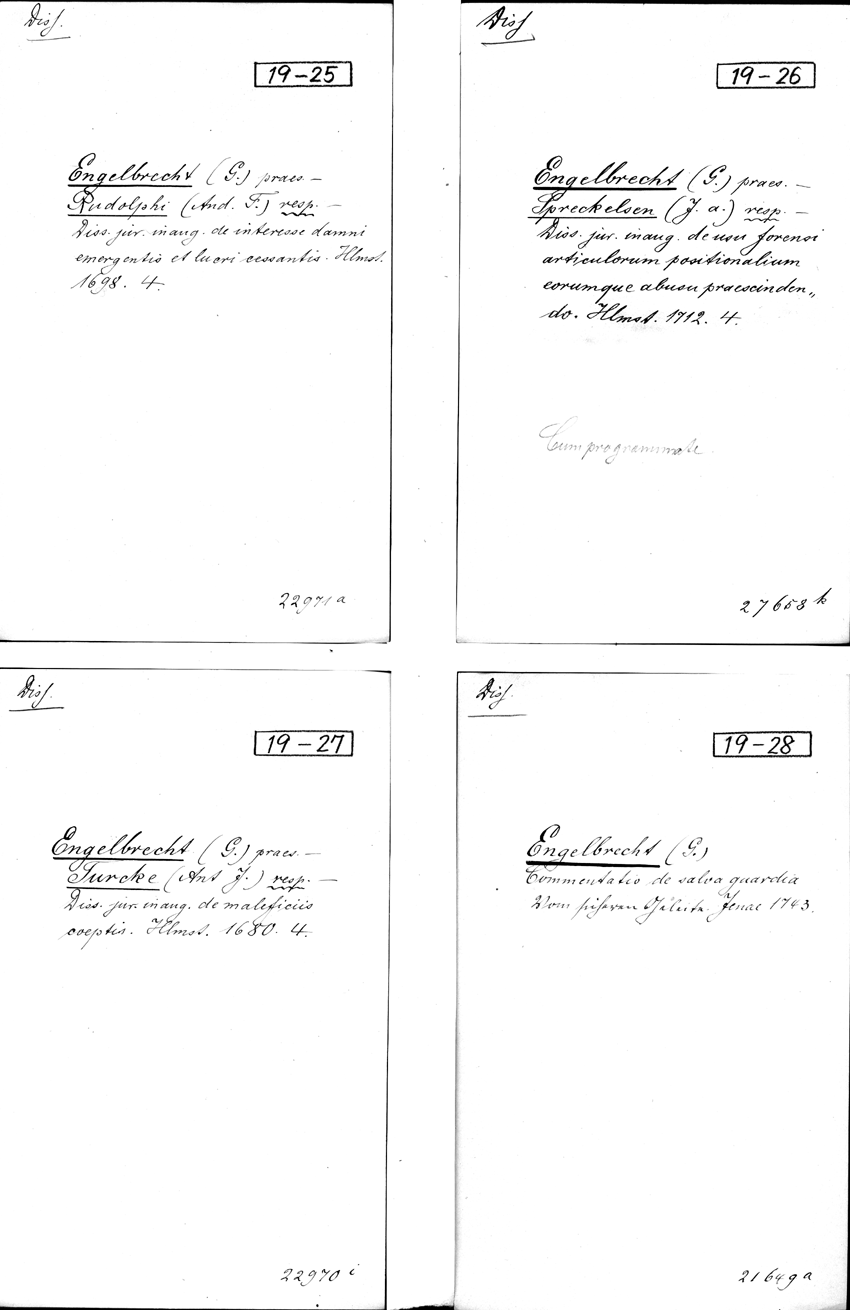 Diss.
19-25
Engelbrecht (G.) praes. —
Rudolphi (And. F.) resp. —
Diss. jur. inaug. de interesse damni
emergentis et lucri cessantis. Hlmst.
1698. 4.
22971 a
Diss
19-26
Engelbrecht (G.) praes. —
Spreckelsen (J. a.) resp. —
Diss. jur. inaug. de usu forensi
articulorum positionalium
eorumque abusu praescinden„
do. Hlmst. 1712. 4.
Cum programmate.
27658 k
Diss.
19-27
Engelbrecht (G.) praes. —
Turcke (Ant J.) resp. —
Diss. jur. inaug. de maleficiis
coeptis. Hlmst. 1680. 4.
22970 i
Diss.
19-28
Engelbrecht (G.)
Commentatio de salva guardia
Vom sicheren Geleite. Jenae 1743.
21649 a